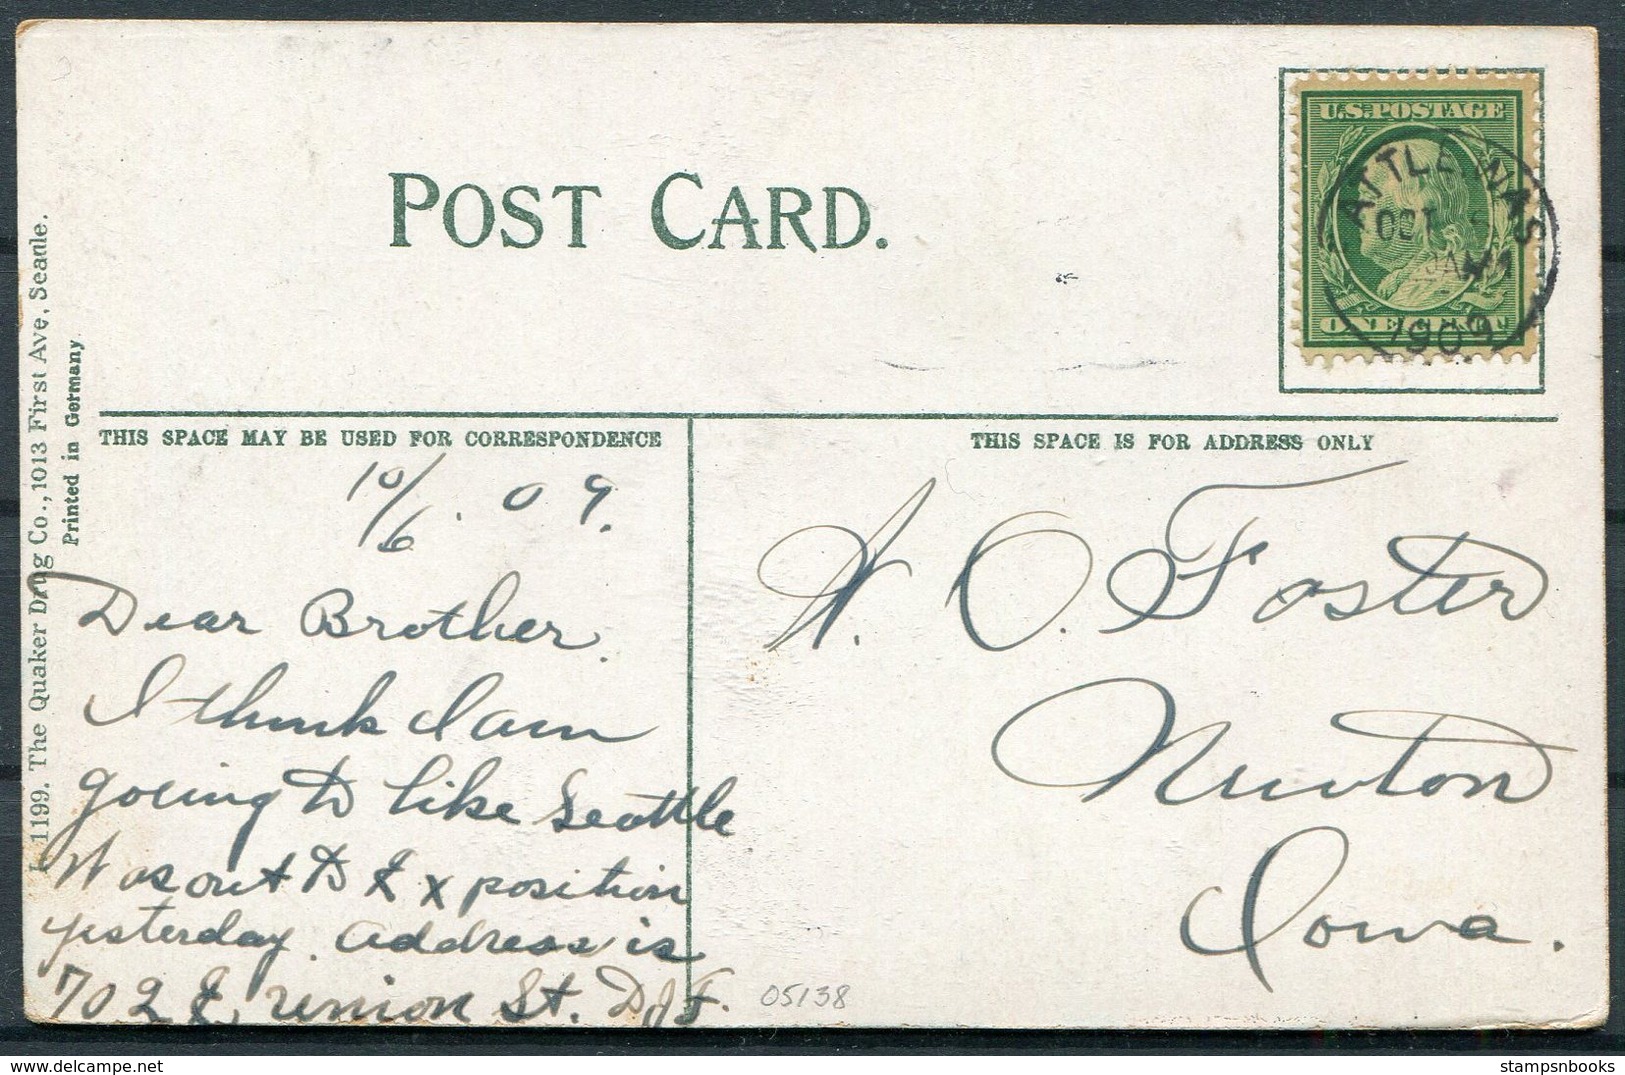 POST CARD.
U.S. POSTAGE
ATTLE, WAS
OCT
1909
ONE CENT
THIS SPACE MAY BE USED FOR CORRESPONDENCE
THIS SPACE IS FOR ADDRESS ONLY
10/6. 09.
Dear Brother.
I think I am
going to like Seattle
Was out to Exposition
yesterday. Address is
702 E, Union St. DJF.
O. Foster
Newton
Iowa.
05138
1199. The Quaker Drug Co., 1013 First Ave, Seattle.
Printed in Germany
stampsnbooks